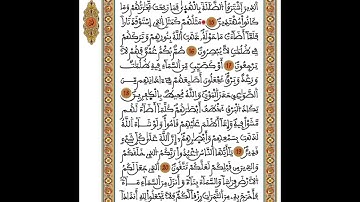 الذين اشتروا الضللة بالهدى فما ربحت تجرتهم وما
كانوا مهتدين 15 مثلهم كمثل الذي استوقد نارا
فلما أضاءت ما حوله ذهب الله بنورهم وتركهم
في ظلمت لا يبصرون 16 صم بكم عمي فهم لا
يرجعون 17 أو كصيب من السماء فيه ظلمت
ورعد وبرق يجعلون أصابعهم في ءاذانهم من
الصوعق حذر الموت والله محيط بالكفرين 18
يكاد البرق يخطف أبصرهم كلما أضاء لهم
مشوا فيه وإذا أظلم عليهم قاموا ولو شاء الله
لذهب بسمعهم وأبصرهم إن الله على كل شيء
قدير 19 يأيها الناس اعبدوا ربكم الذي خلقكم
والذين من قبلكم لعلكم تتقون 20 الذي جعل لكم
الأرض فرشا والسماء بناء وأنزل من السماء ماء
فأخرج به من الثمرت رزقا لكم فلا تجعلوا لله أندادا